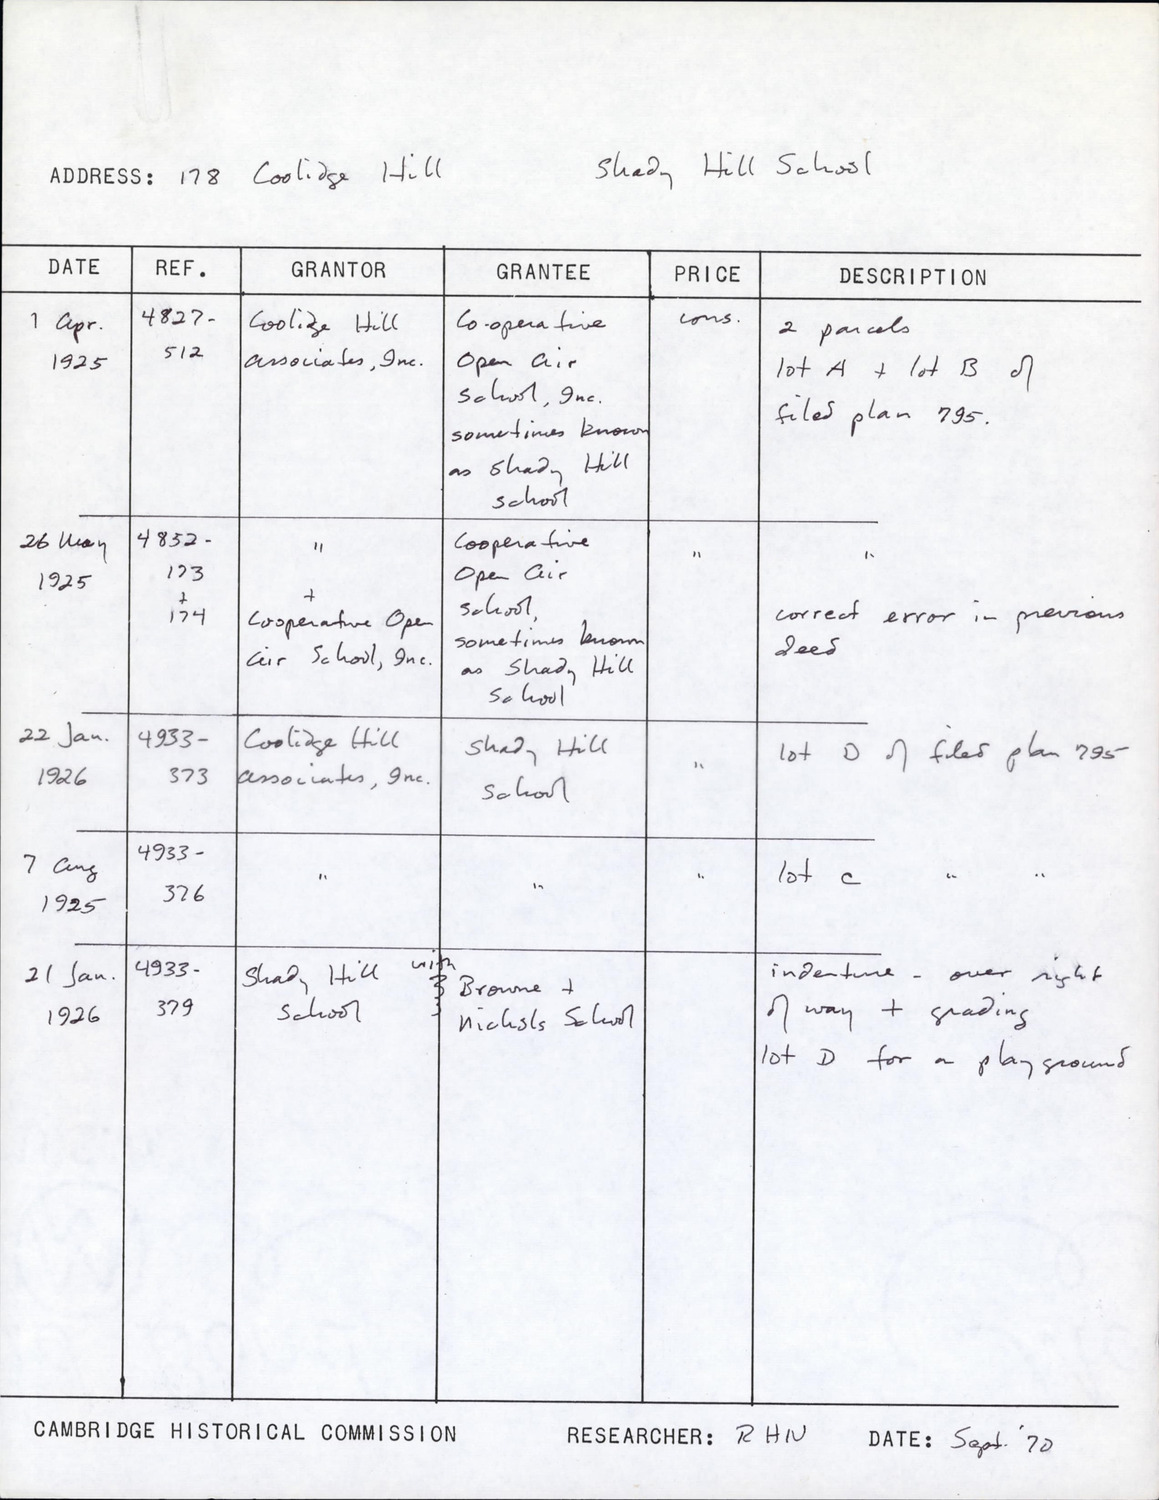 ADDRESS: 178 Coolidge Hill Shady Hill School
DATE REF. GRANTOR GRANTEE PRICE DESCRIPTION
1 Apr. 1925
4827-512
Coolidge Hill
Associates, Inc.
Co-operative
Open Air
School, Inc.
sometimes known
as Shady Hill
School
cons.
2 parcels
lot A + lot B of
filed plan 795.
26 May
1925
4852-
173
+
174
"
+
Cooperative Open
Air School, Inc.
Cooperative
Open Air
School,
sometimes known
as Shady Hill
School
"
"
correct error in previous
deed
22 Jan.
1926
4933-
373
Coolidge Hill
Associates, Inc.
Shady Hill
School
"
lot D of filed plan 795
7 Aug
1925
4933-
376
"
"
"
lot C " "
21 Jan.
1926
4933-
379
Shady Hill with
School
Browne +
Nichols School
indenture - over right
of way + grading
lot D for a playground
CAMBRIDGE HISTORICAL COMMISSION RESEARCHER: RHN DATE: Sept. '70